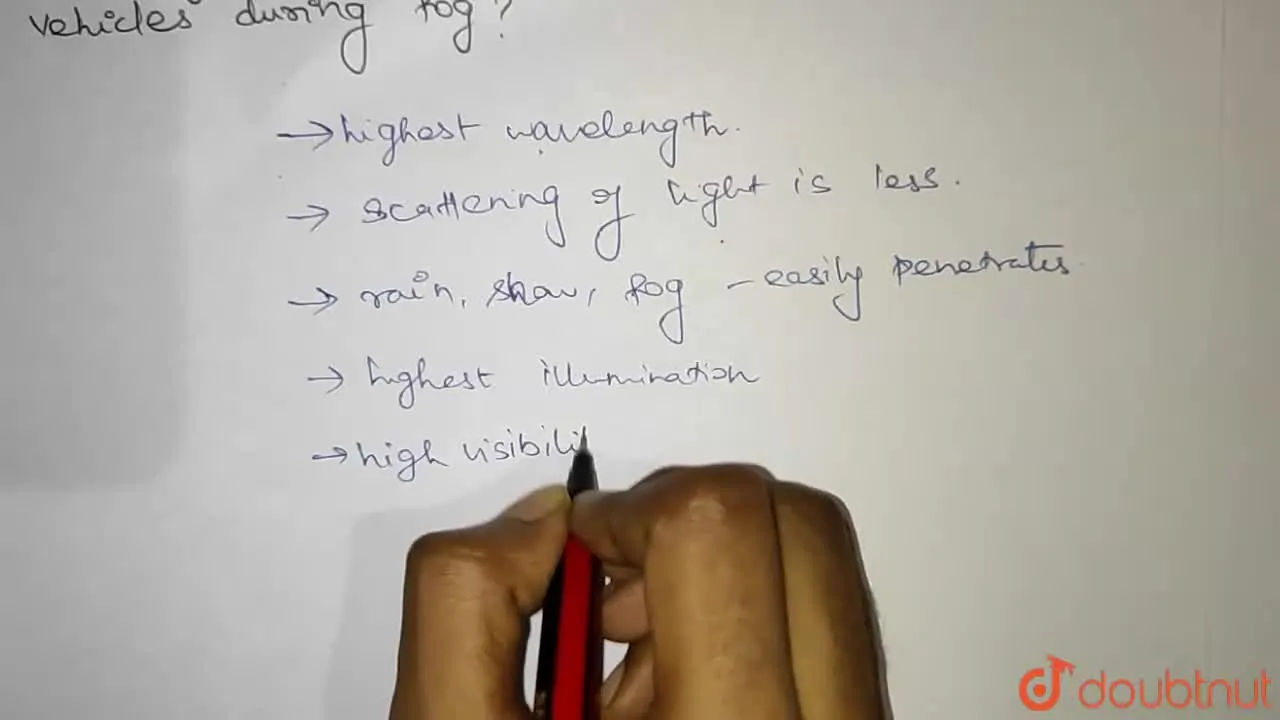 vehicles during fog?
→ highest wavelength.
→ scattering of light is less.
→ rain, snow, fog – easily penetrates
→ highest illumination
→ high visibili
doubtnut